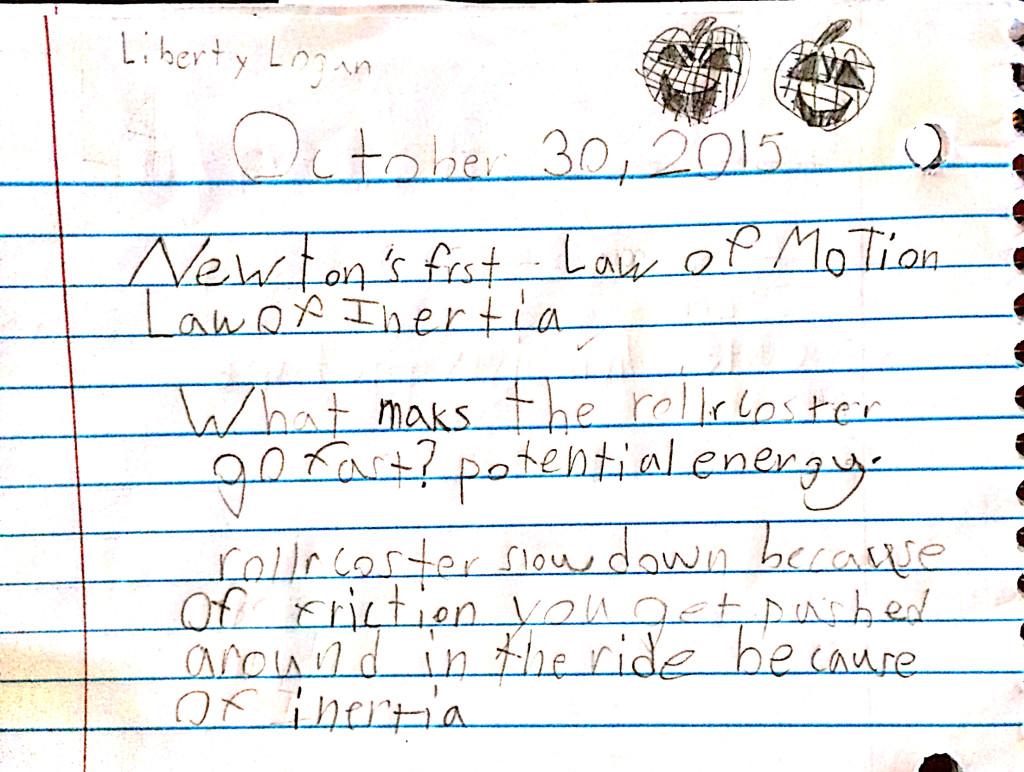 Liberty Logan
October 30, 2015
Newton's frst Law of Motion
Law of Inertia
What maks the rollrcoster
go fast? potential energy.
rollrcoster slow down because
Of friction you get pushed
around in the ride because
Of inertia